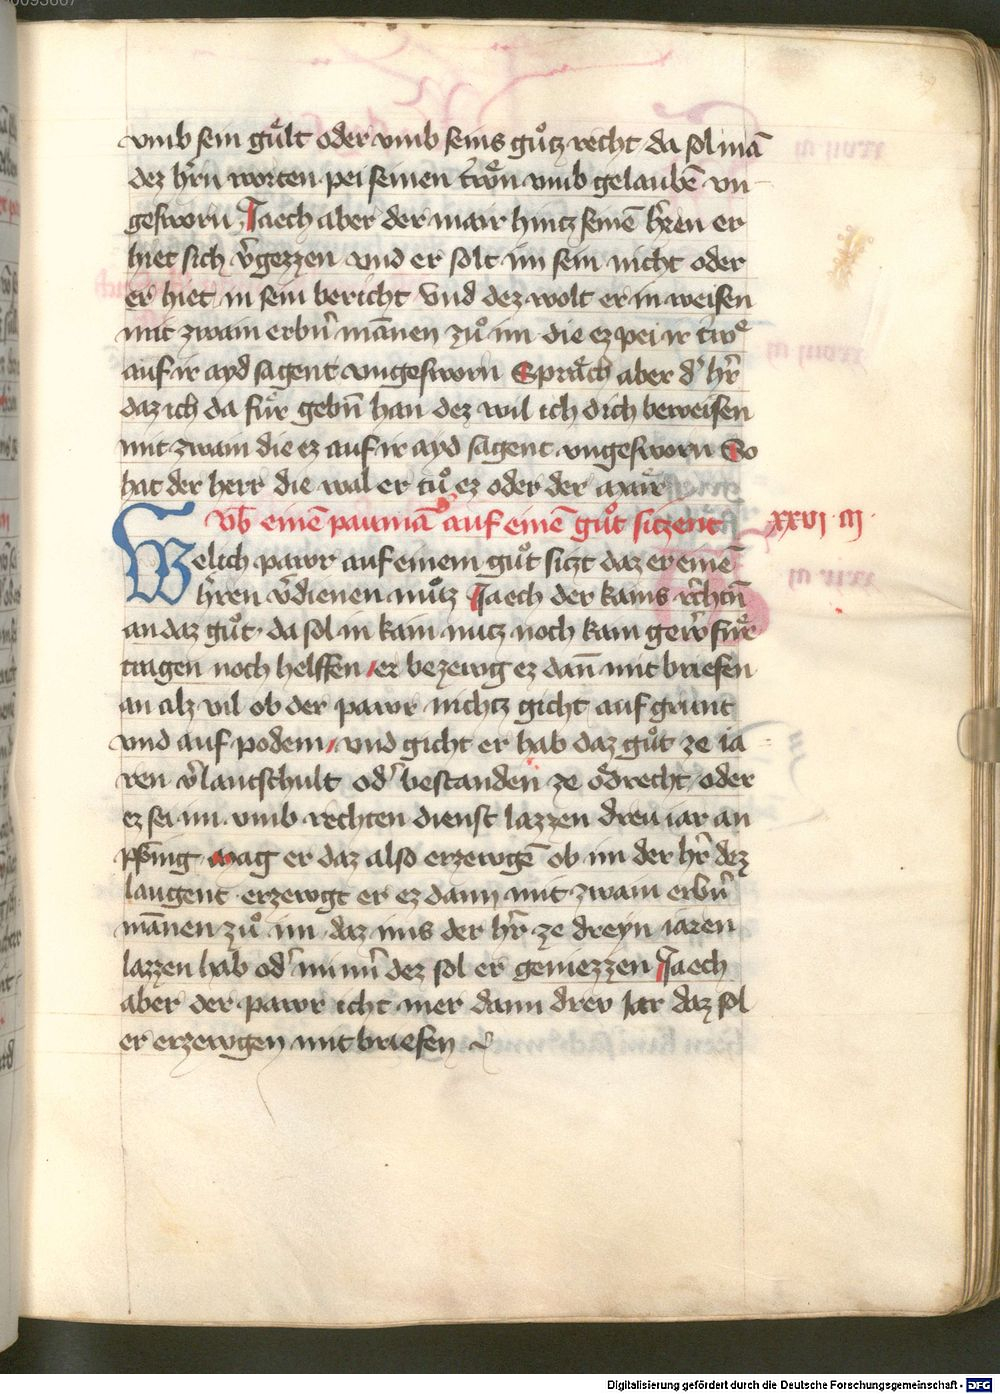 vmb sein gu̎lt oder vmb seins gůtz recht da sol mā
dez hr̄n worten pei seinen tr̄wo̎n vmb gelaubē vn
gesworn Jaech aber der mair hintz seinē hr̄ren er
hiet sich v̄gezzen vnd er solt im sein nicht oder
er hiet in sein bericht Vnd dez wolt er in weisen
mit zwain erbn̄ mānen zů im die ez pei ir trw̄e
auf ir ayd sagent vngesworn Sprăch aber d' hr̄
daz ich da fu̎r gebn̄ han dez wil ich dich beweisen
mit zwain die ez auf ir ayd sagent vngesworn So
hat der herr die wal er tů ez oder der mair
Vb einē paumā auf einē gůt sitzent xxvi iij
Welich pawr auf einem gůt sitzt daz er einē
hr̄ren v̄dienen můz Jaech der kains rechtn̄
an daz gůt da sol in kain nutz noch kain gerw̄ fu̎r
tragen noch helffen er bezewg ez dan̄ mit briefen
an alz vil ob der pawr nichtz gicht auf grunt
vnd auf podem vnd gicht er hab daz gůt ze ia
ren v̄lantschult od' bestanden ze ődrecht oder
ez sei im vmb rechten dienst lazzen dreu iar an
mag er daz also erzewgē ob im der hr̄ dez
laugent erzewgt er ez dann mit zwain erbn̄
mānen zů im daz ims der hr̄ ze dreyn iaren
lazzen hab od' minn̄ dez sol er geniezzen Jaech
aber der pawr icht mer dann drev Jar daz sol
er erzewgen mit briefen
Digitalisierung gefördert durch die Deutsche Forschungsgemeinschaft - DFG